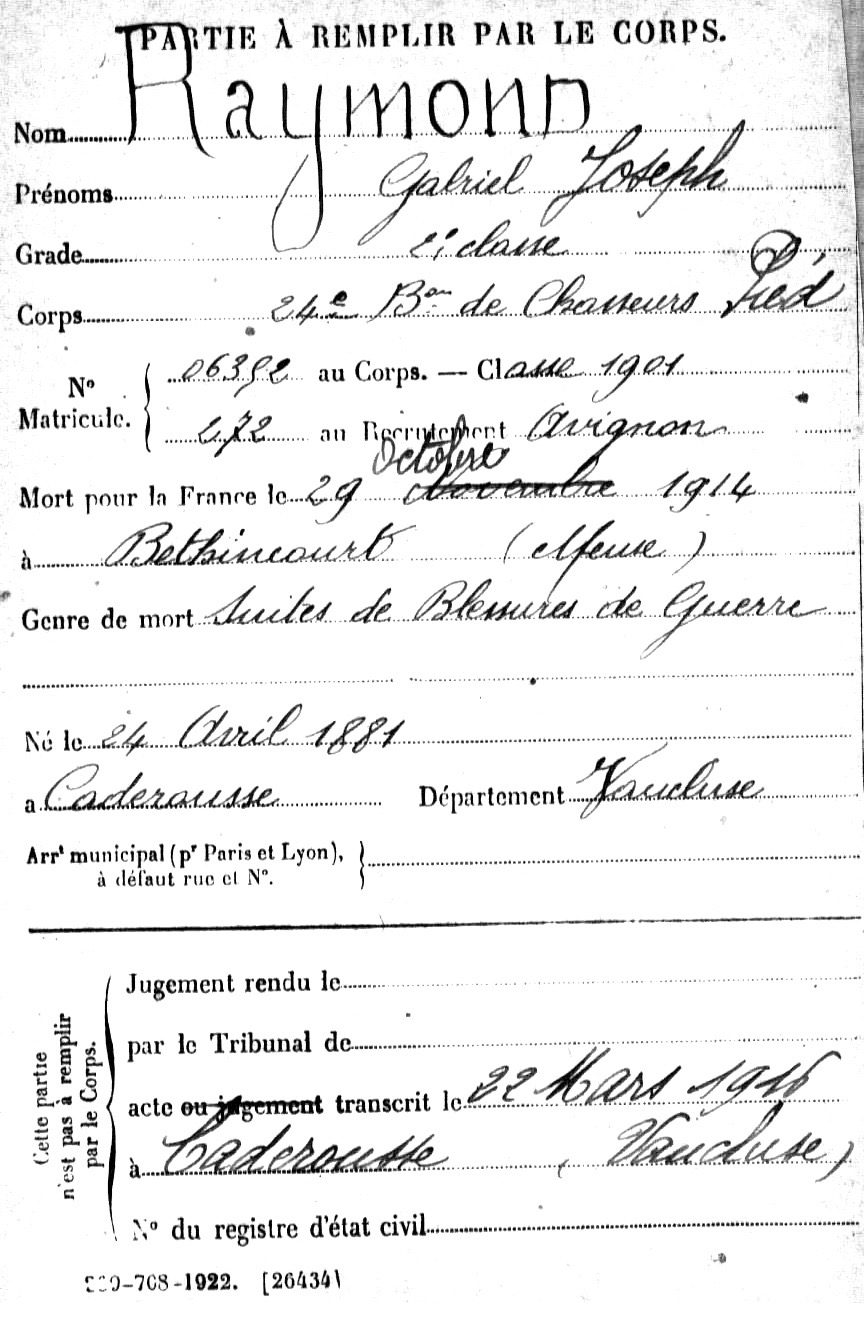 PARTIE À REMPLIR PAR LE CORPS.
Nom Raymond
Prénoms Gabriel Joseph
Grade 2e classe
Corps 24e Bon de Chasseurs Pied
No Matricule. 06392 au Corps. — Classe 1901
472 au Recrutement Avignon
Octobre
Mort pour la France le 29 Novembre 1914
à Bethincourt (Meuse)
Genre de mort Suites de Blessures de Guerre
Né le 24 Avril 1881
a Caderousse Département Vaucluse
Arrt municipal (pr Paris et Lyon),
à défaut rue et No.
Jugement rendu le
par le Tribunal de
acte ou jugement transcrit le 22 Mars 1916
à Caderousse (Vaucluse)
No du registre d'état civil
Cette partie
n'est pas à remplir
par le Corps.
-708-1922. [26434]